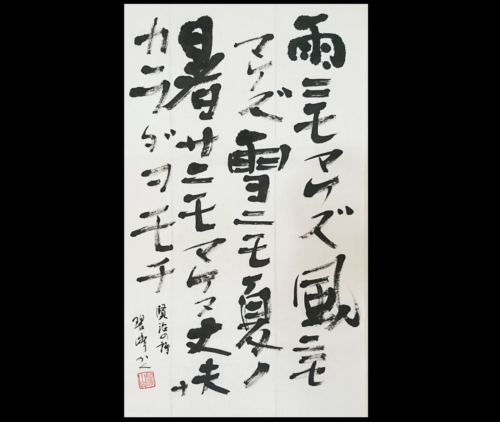 雨ニモマケズ風ニモ
マケズ雪ニモ夏ノ
暑サニモマケヌ丈夫ナ
カラダヲモチ
賢治の詩